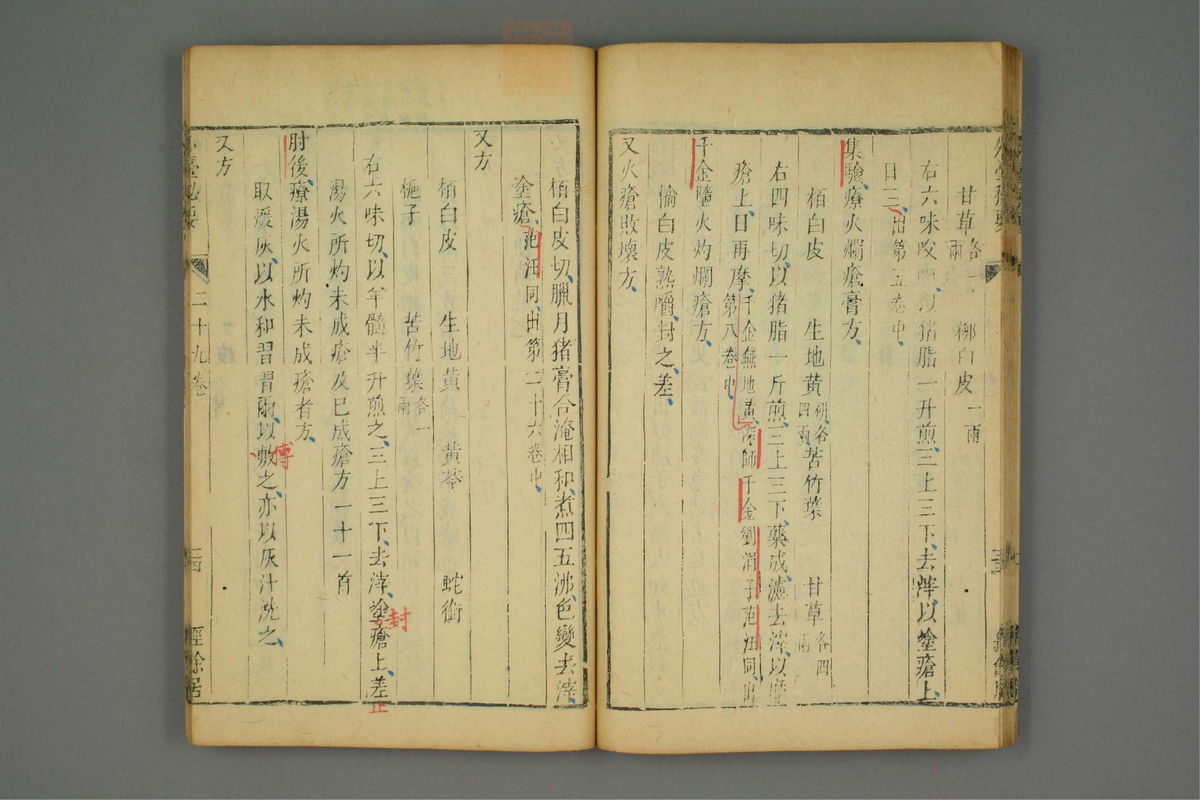 甘草各一兩 柳白皮一兩
右六味㕮咀以猪脂一升煎三上三下去滓以塗瘡上
日三出第五卷中
集驗療火爛瘡膏方
栢白皮 生地黄 苦竹葉 甘草各四兩
右四味切以猪脂一斤煎三上三下藥成濾去滓以摩
瘡上日再摩千金無地黄深師千金劉涓子范汪同出第八卷中
千金墮火灼爛瘡方
榆白皮熟嚼封之差
又火瘡敗壞方
栢白皮切臘月猪膏合淹相和煮四五沸色變去滓
塗瘡范汪同出第二十六卷中
又方
栢白皮 生地黄 黄芩 蛇銜
梔子 苦竹葉各一兩
右六味切以羊髓半升煎之三上三下去滓塗瘡上差
封
正
湯火所灼未成瘡及已成瘡方一十一首
肘後療湯火所灼未成瘡者方
取煖灰以水和習習爾以敷之亦以灰汁洗之
傅
又方
二十九卷
經餘居